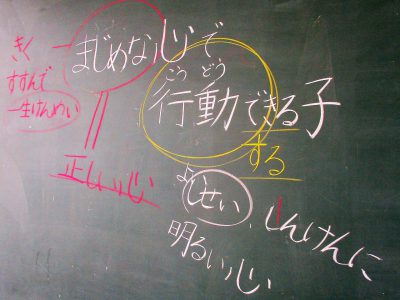 まじめな心で
きく
すすんで
一生けんめい
こう どう
行動できる子
する
正しい心
よしせい、しんけんに
明るい心